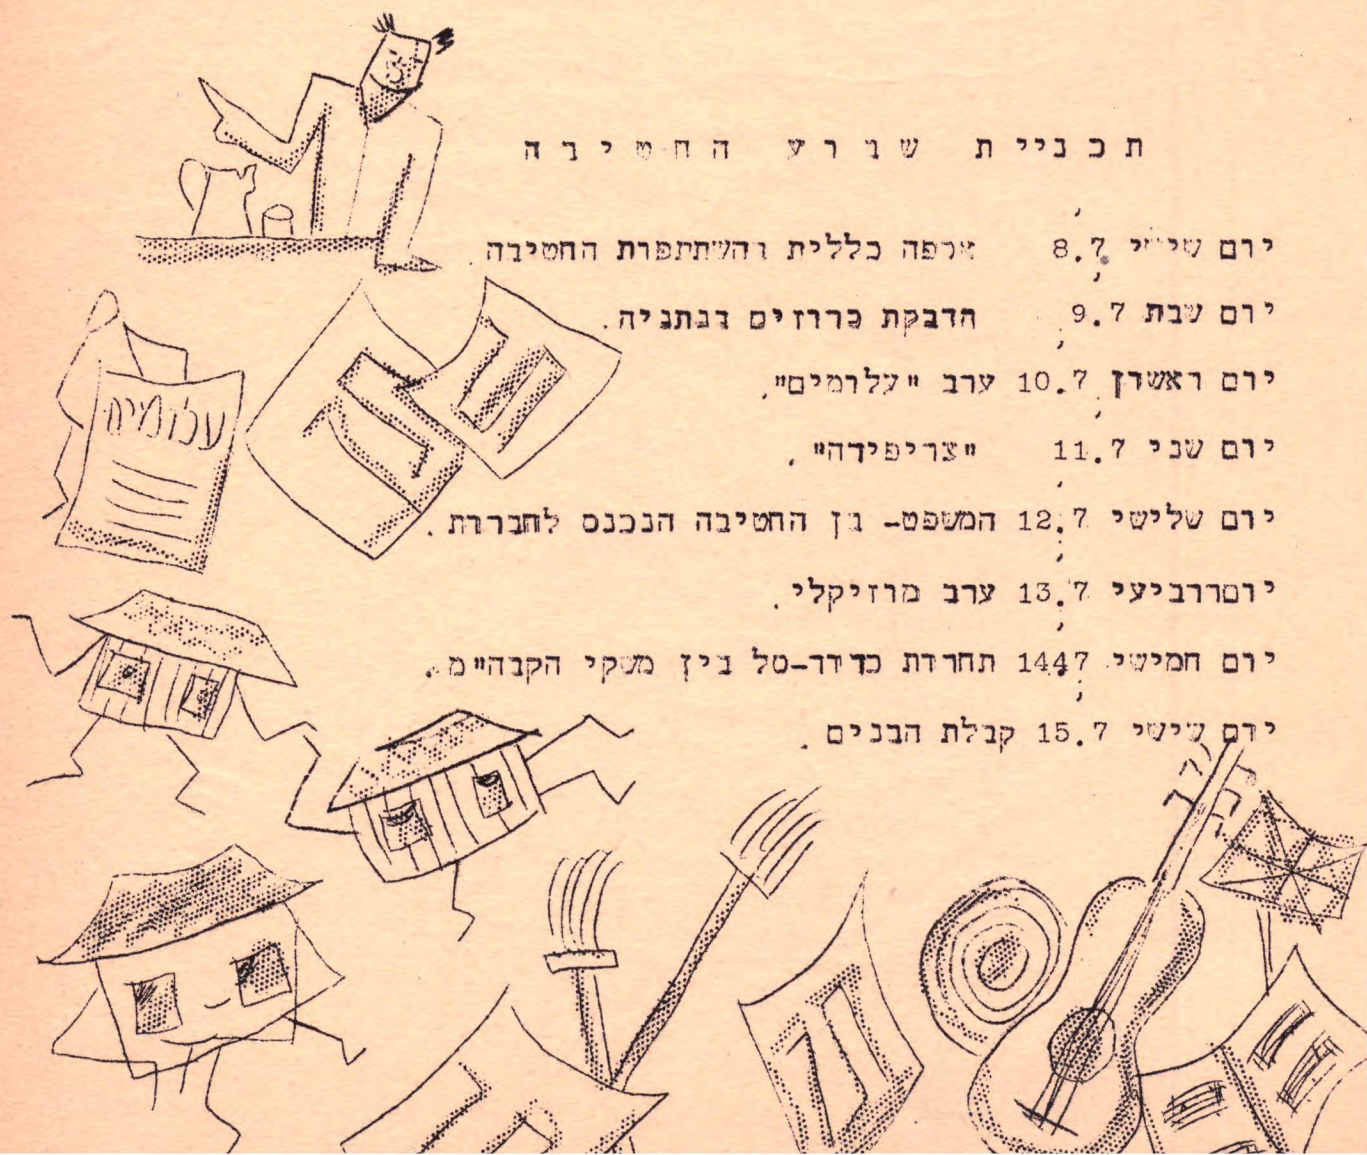 תכניית שבוע החטיבה
יום שישי 8.7 אסיפה כללית והשתתפות החטיבה.
יום שבת 9.7 הדבקת כרוזים בנתניה.
יום ראשון 10.7 ערב "עלומים".
יום שני 11.7 "צריפידה".
יום שלישי 12.7 המשפט- בן החטיבה הנכנס לחברות.
יוםררביעי 13.7 ערב מוזיקלי.
יום חמישי 1447 תחרות כדור-סל בין משקי הקבה"מ.
יום שישי 15.7 קבלת הבנים.
עלומים